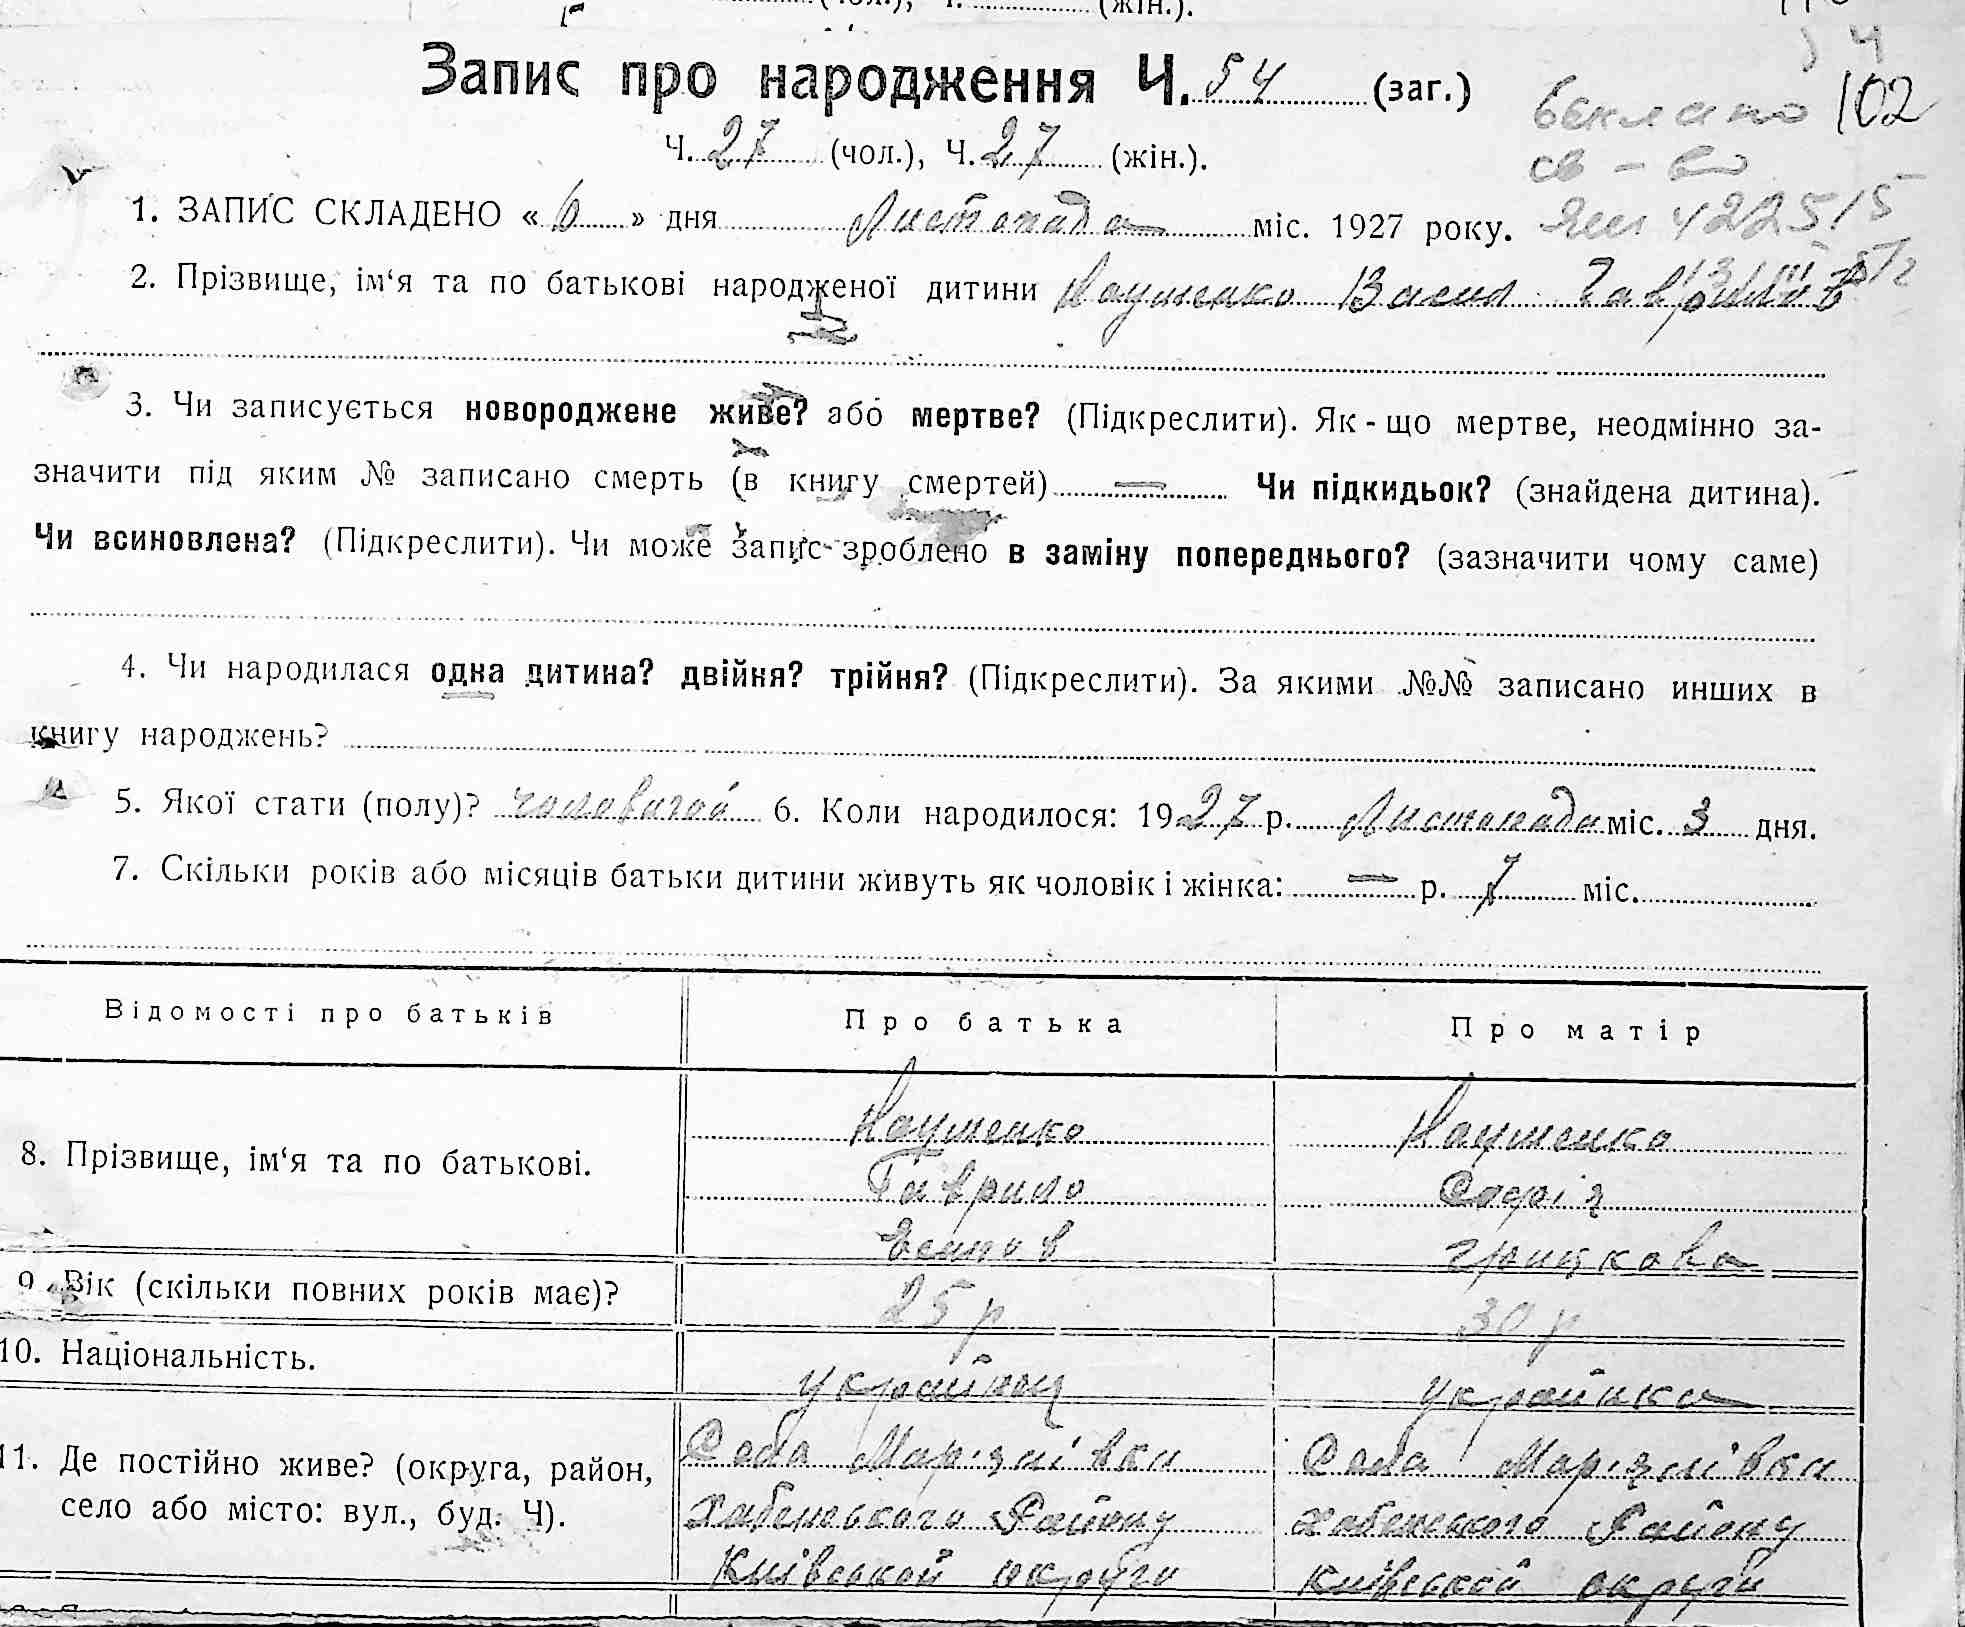 (чол.), Ч. (жін.).
Запис про народження Ч. 54 (заг.)
102
Ч. 27 (чол.), Ч. 27 (жін.).
св-во
1. ЗАПИС СКЛАДЕНО «6» дня Листопада міс. 1927 року.
422515
2. Прізвище, ім‘я та по батькові народженої дитини Наученко Васил Гаврилов
3. Чи записується новороджене живе? або мертве? (Підкреслити). Як-що мертве, неодмінно за-
значити під яким № записано смерть (в книгу смертей) — Чи підкидьок? (знайдена дитина).
Чи всиновлена? (Підкреслити). Чи може запис зроблено в заміну попереднього? (зазначити чому саме)
4. Чи народилася одна дитина? двійня? трійня? (Підкреслити). За якими №№ записано инших в
книгу народжень?
5. Якої стати (полу)? чоловичой 6. Коли народилося: 1927 р. Листопада міс. 3 дня.
7. Скільки років або місяців батьки дитини живуть як чоловік і жінка: — р. 7 міс.
Відомості про батьків Про батька Про матір
8. Прізвище, ім‘я та по батькові.
Наученко Наученко
Гаврило Софія
Грицкова
9. Вік (скільки повних років має)? 25 р 30 р
10. Національність. украйнец украйнка
11. Де постійно живе? (округа, район,
село або місто: вул., буд. Ч).
Села Маріянівки Села Маріянівки
Хабенського Району Хабенського Району
Київськой округи Київськой округи